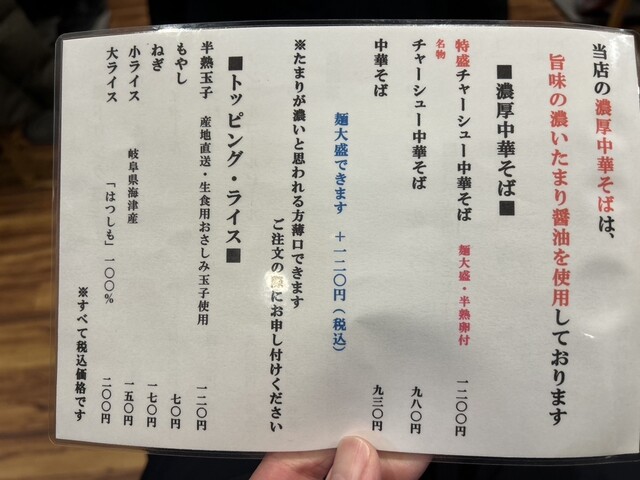 当店の濃厚中華そばは、
旨味の濃いたまり醤油を使用しております
■濃厚中華そば■
名物
特盛チャーシュー中華そば 麺大盛・半熟卵付 一二〇〇円
チャーシュー中華そば 九八〇円
中華そば 九三〇円
麺大盛できます +一二〇円(税込)
※たまりが濃いと思われる方薄口できます
ご注文の際にお申し付けください
■トッピング・ライス■
半熟玉子 産地直送・生食用おさしみ玉子使用 一二〇円
もやし 七〇円
ねぎ 一七〇円
小ライス 岐阜県海津産 一五〇円
大ライス 「はつしも」一〇〇% 二〇〇円
※すべて税込価格です